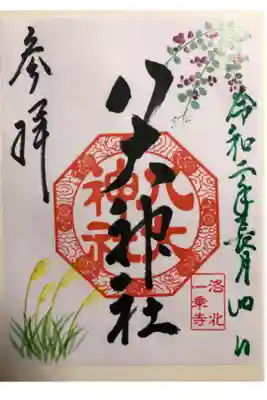 令和二年長月四日
八大神社
八大神社
洛北
一乗寺
参拝